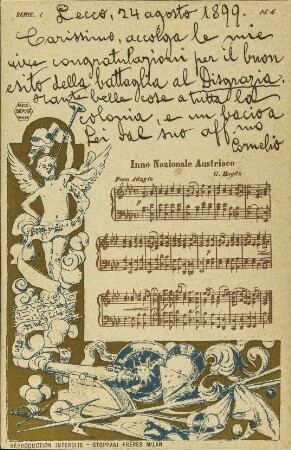 SERIE. I
N. 6
Lecco, 24 agosto 1899.
Carissimo, accolga le mie
vive congratulazioni per il buon
esito della battaglia al Disgrazia.
Tante belle cose a tutta la
colonia, e un bacio a
Lei dal suo aff.mo
Cornelio
Inno Nazionale Austriaco
Poco Adagio
G. Haydn
p
REPRODUCTION INTERDITE - STOPPANI FRÈRES MILAN